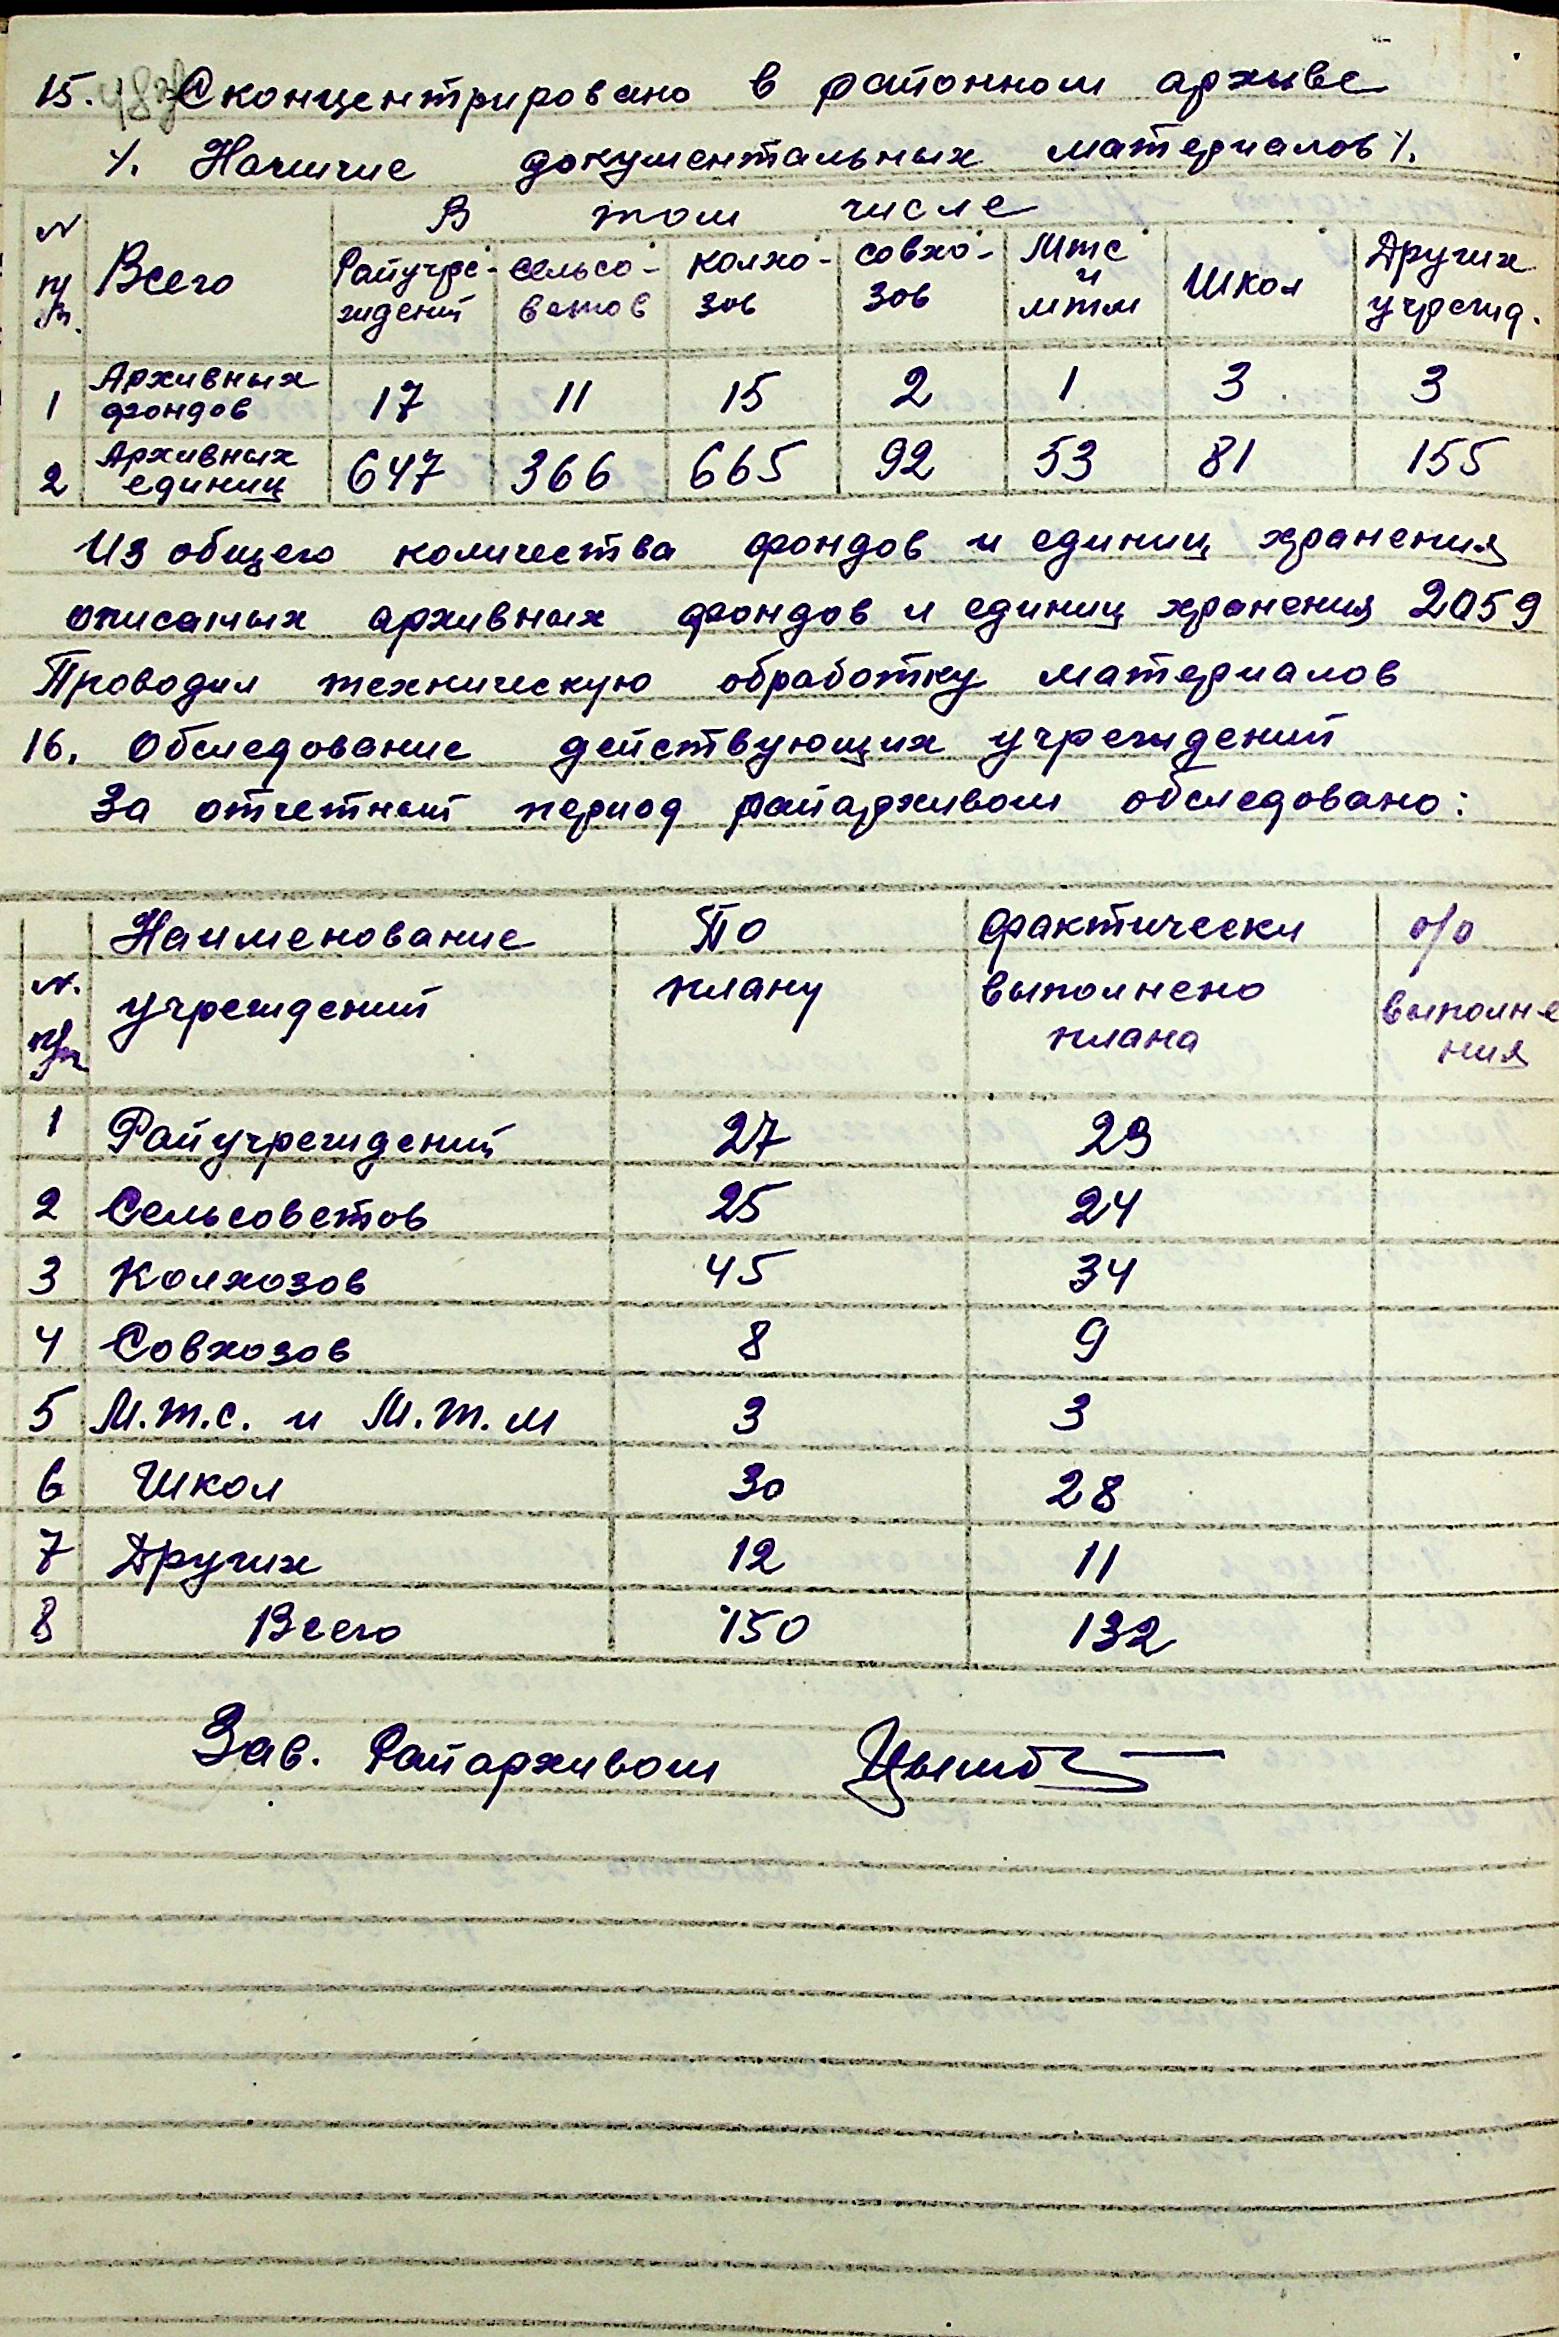 15. Сконцентрировано в районном архиве
/. Наличие документальных материалов /.
N п/п. Всего В том числе
Райучре-ждений сельсо-ветов колхо-зов совхо-зов Мтс и мтм Школ Других учрежд.
1 Архивных фондов 17 11 15 2 1 3 3
2 Архивных единиц 647 366 665 92 53 81 155
Из общего количества фондов и единиц хранения
описанных архивных фондов и единиц хранения 2059
Проводил техническую обработку материалов
16. Обследование действующих учреждений
За отчетный период райархивом обследовано:
N. п/п Наименование учреждений По плану фактически выполнено плана о/о выполне ния
1 Райучреждений 27 23
2 Сельсоветов 25 24
3 Колхозов 45 34
4 Совхозов 8 9
5 М.т.с. и М.т.м 3 3
6 Школ 30 28
7 Других 12 11
8 Всего 150 132
Зав. Райархивом